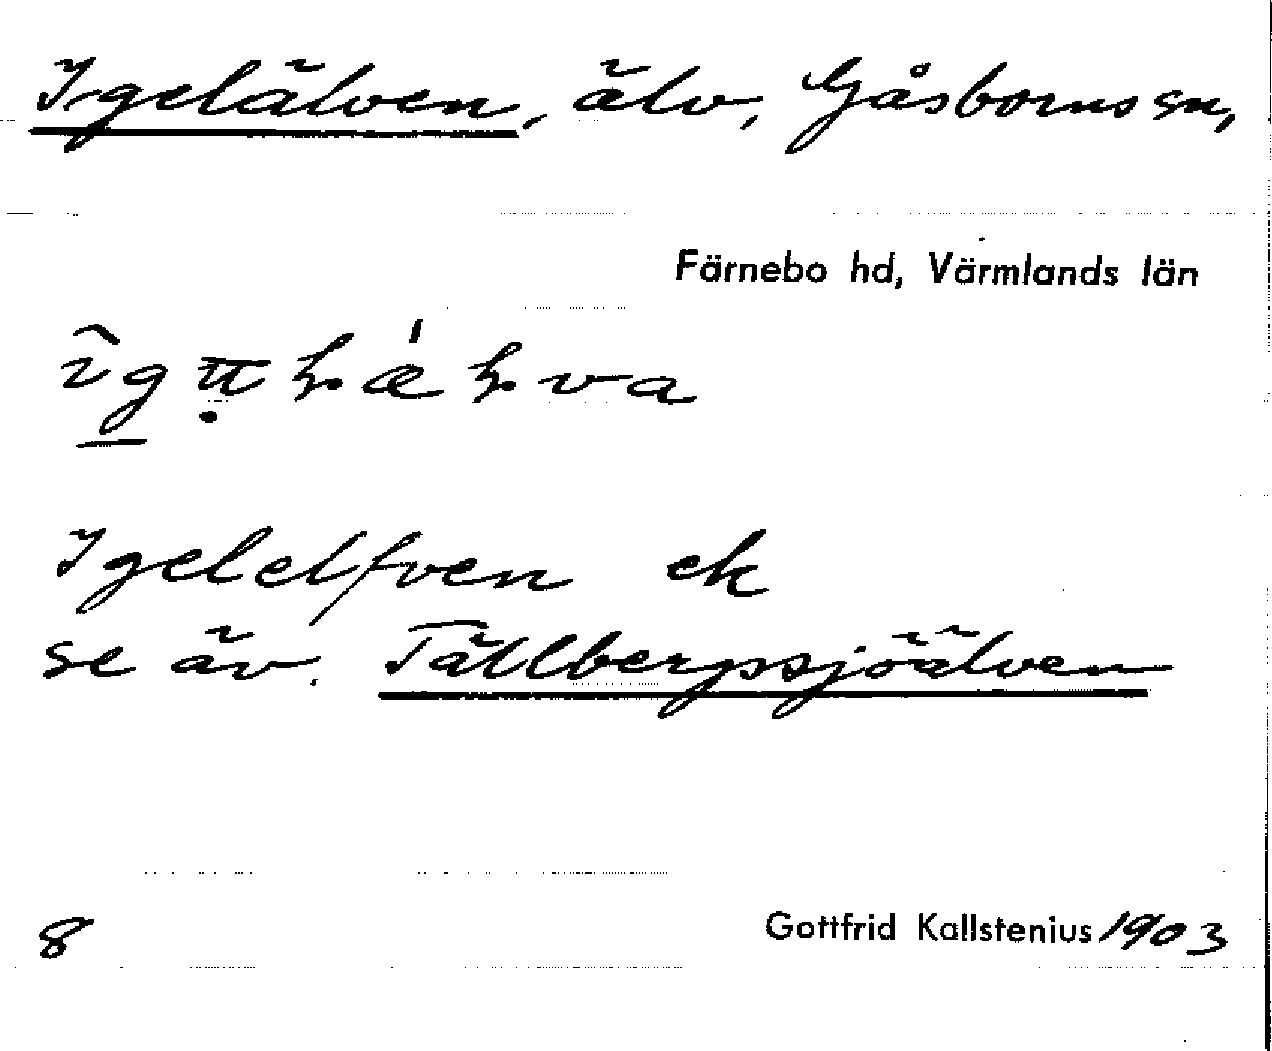 Igelälven, älv, Gåsborns sn,
Färnebo hd, Värmlands län
Igelelfven ek
se äv. Tällbergssjöälven
8 Gottfrid Kallstenius 1903